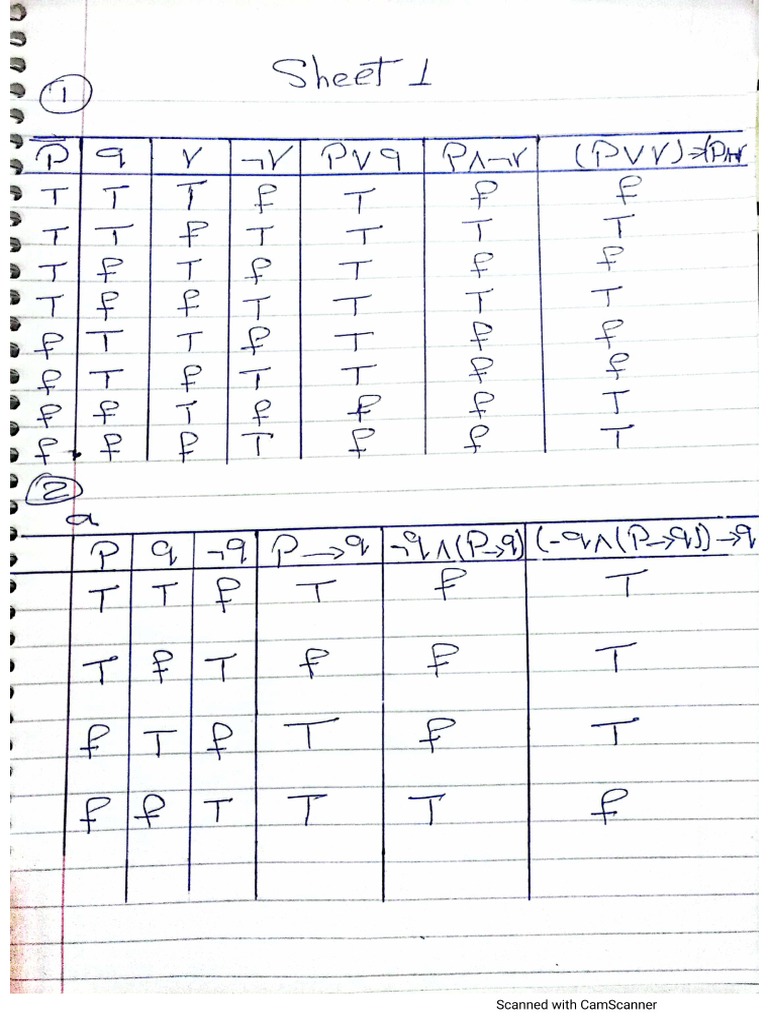 Sheet 1
1
P q r ¬r P∨q P∧¬r (P∨r)⇒(P∧¬r
T T T f T f f
T T f T T T T
T f T f T f f
T f f T T T T
f T T f T f f
f T f T T f f
f f T f f f T
f f f T f f T
2
a
P q ¬q P→q ¬q∧(P→q) (¬q∧(P→q))→q
T T f T f T
T f T f f T
f T f T f T
f f T T T f
Scanned with CamScanner